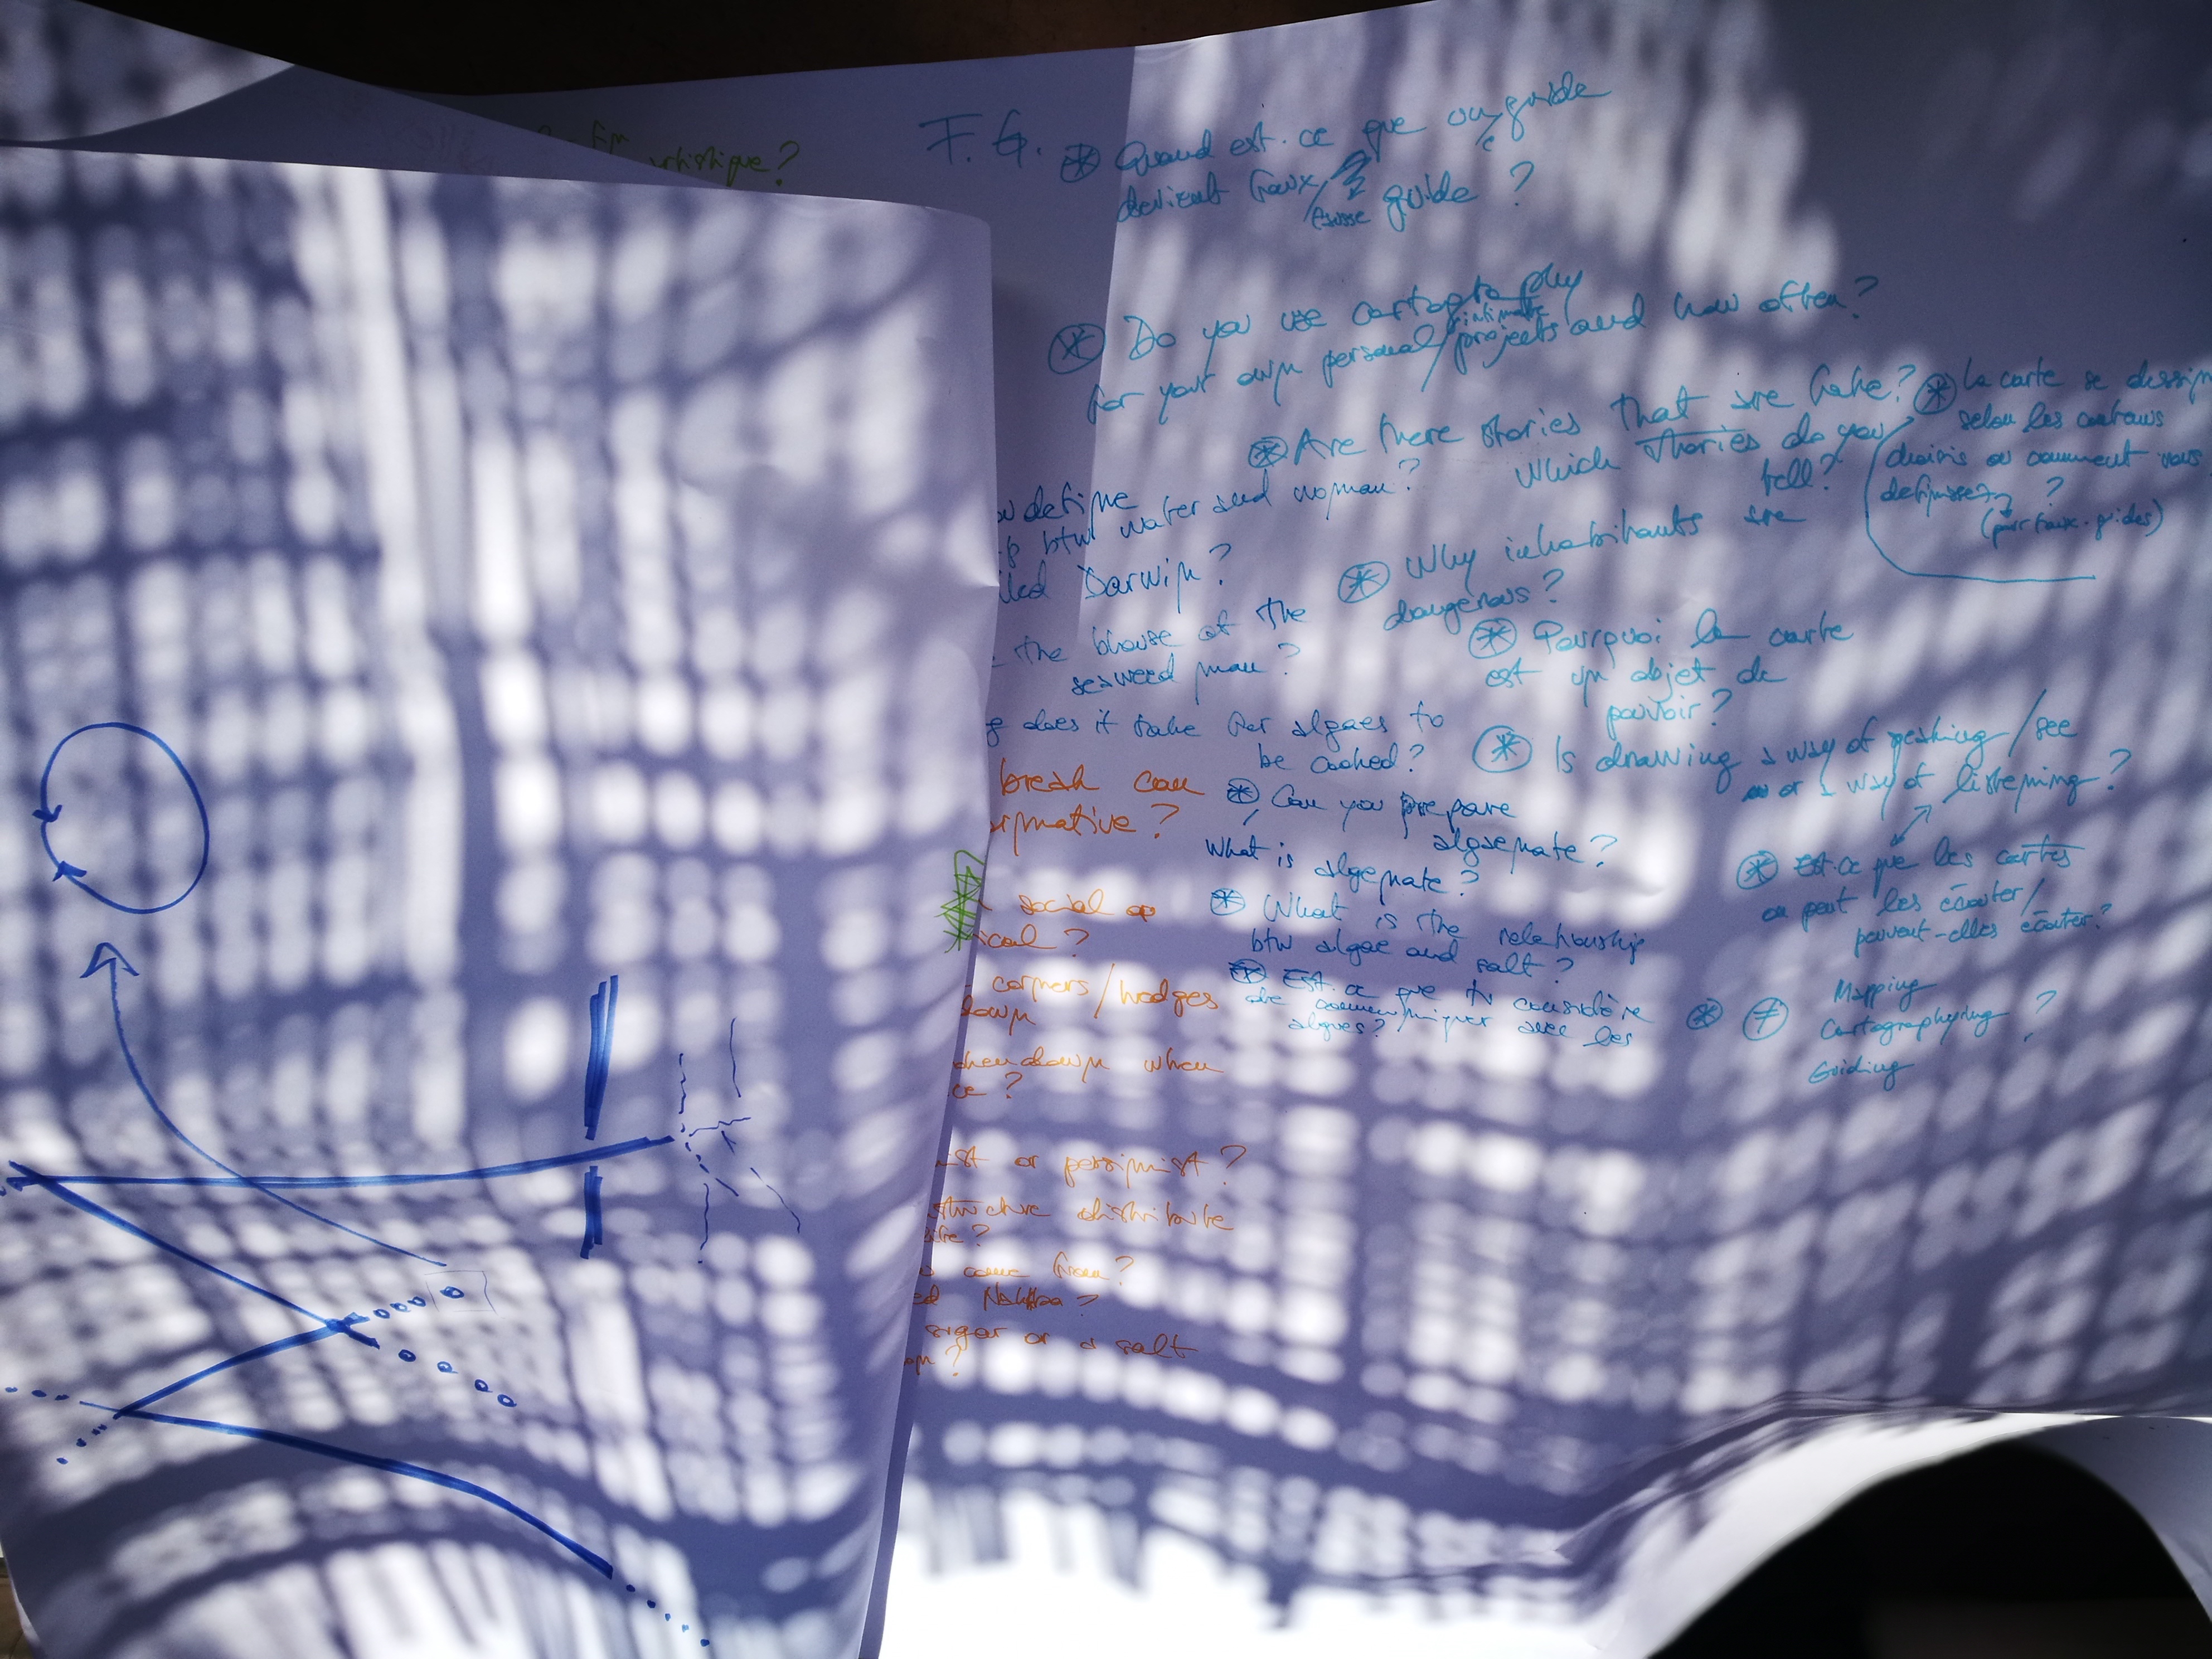 artistique?
F.G. * Quand est-ce que guide
devient faux/fausse guide?
* Do you use cartography
for your own personal/intimate projects and how often?
* Are there stories that are fake?
Which stories do you
tell?
* La carte se dessin
selon les
choisis ou comment vous
définissez ?
(par faux-guides)
define
btw water and woman?
Darwin?
* Why inhabitants are
dangerous?
the blouse of the
seaweed man?
* Pourquoi la carte
est un objet de
pouvoir?
does it take for algaes to
be cooked?
* Is drawing a way of /see
or a way of listening?
break can
rmative?
* Can you prepare
algaenate?
What is algenate?
* Est-ce que les cartes
on peut les écouter/
peuvent-elles écouter?
social or
ical?
* What is the relationship
btw algae and salt?
corners/hedges
down
* Est-ce que tu considère
de communiquer avec les
algues?
* ≠ Mapping
Cartographying ?
Guiding
down when
ce?
ist or pessimist?
structure distribute
come from?
sugar or a salt